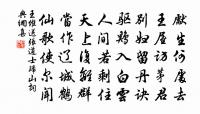 先生何處去
王屋訪茅君
別婦留丹訣
驅雞入白雲
人間若剩住
天上復離群
當作遼城鶴
仙歌使爾聞
王維送張道士歸山詞
典網集